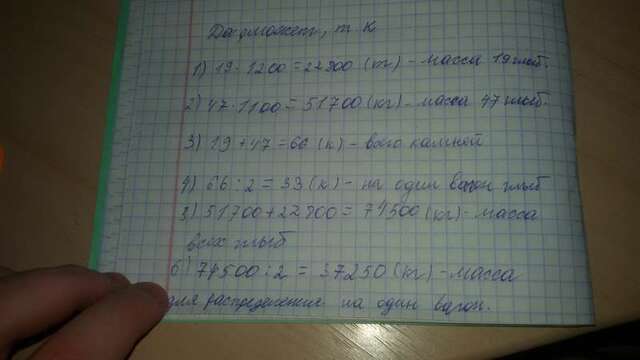 Да, может, т к
1) 19 · 1200 = 22800 (кг) - масса 19 глыб.
2) 47 · 1100 = 51700 (кг) - масса 47 глыб.
3) 19 + 47 = 66 (к) - всего камней
4) 66 : 2 = 33 (к) - на один вагон глыб
5) 51700 + 22800 = 74500 (кг) - масса
всех глыб
6) 74500 : 2 = 37250 (кг) - масса
для распределения на один вагон.